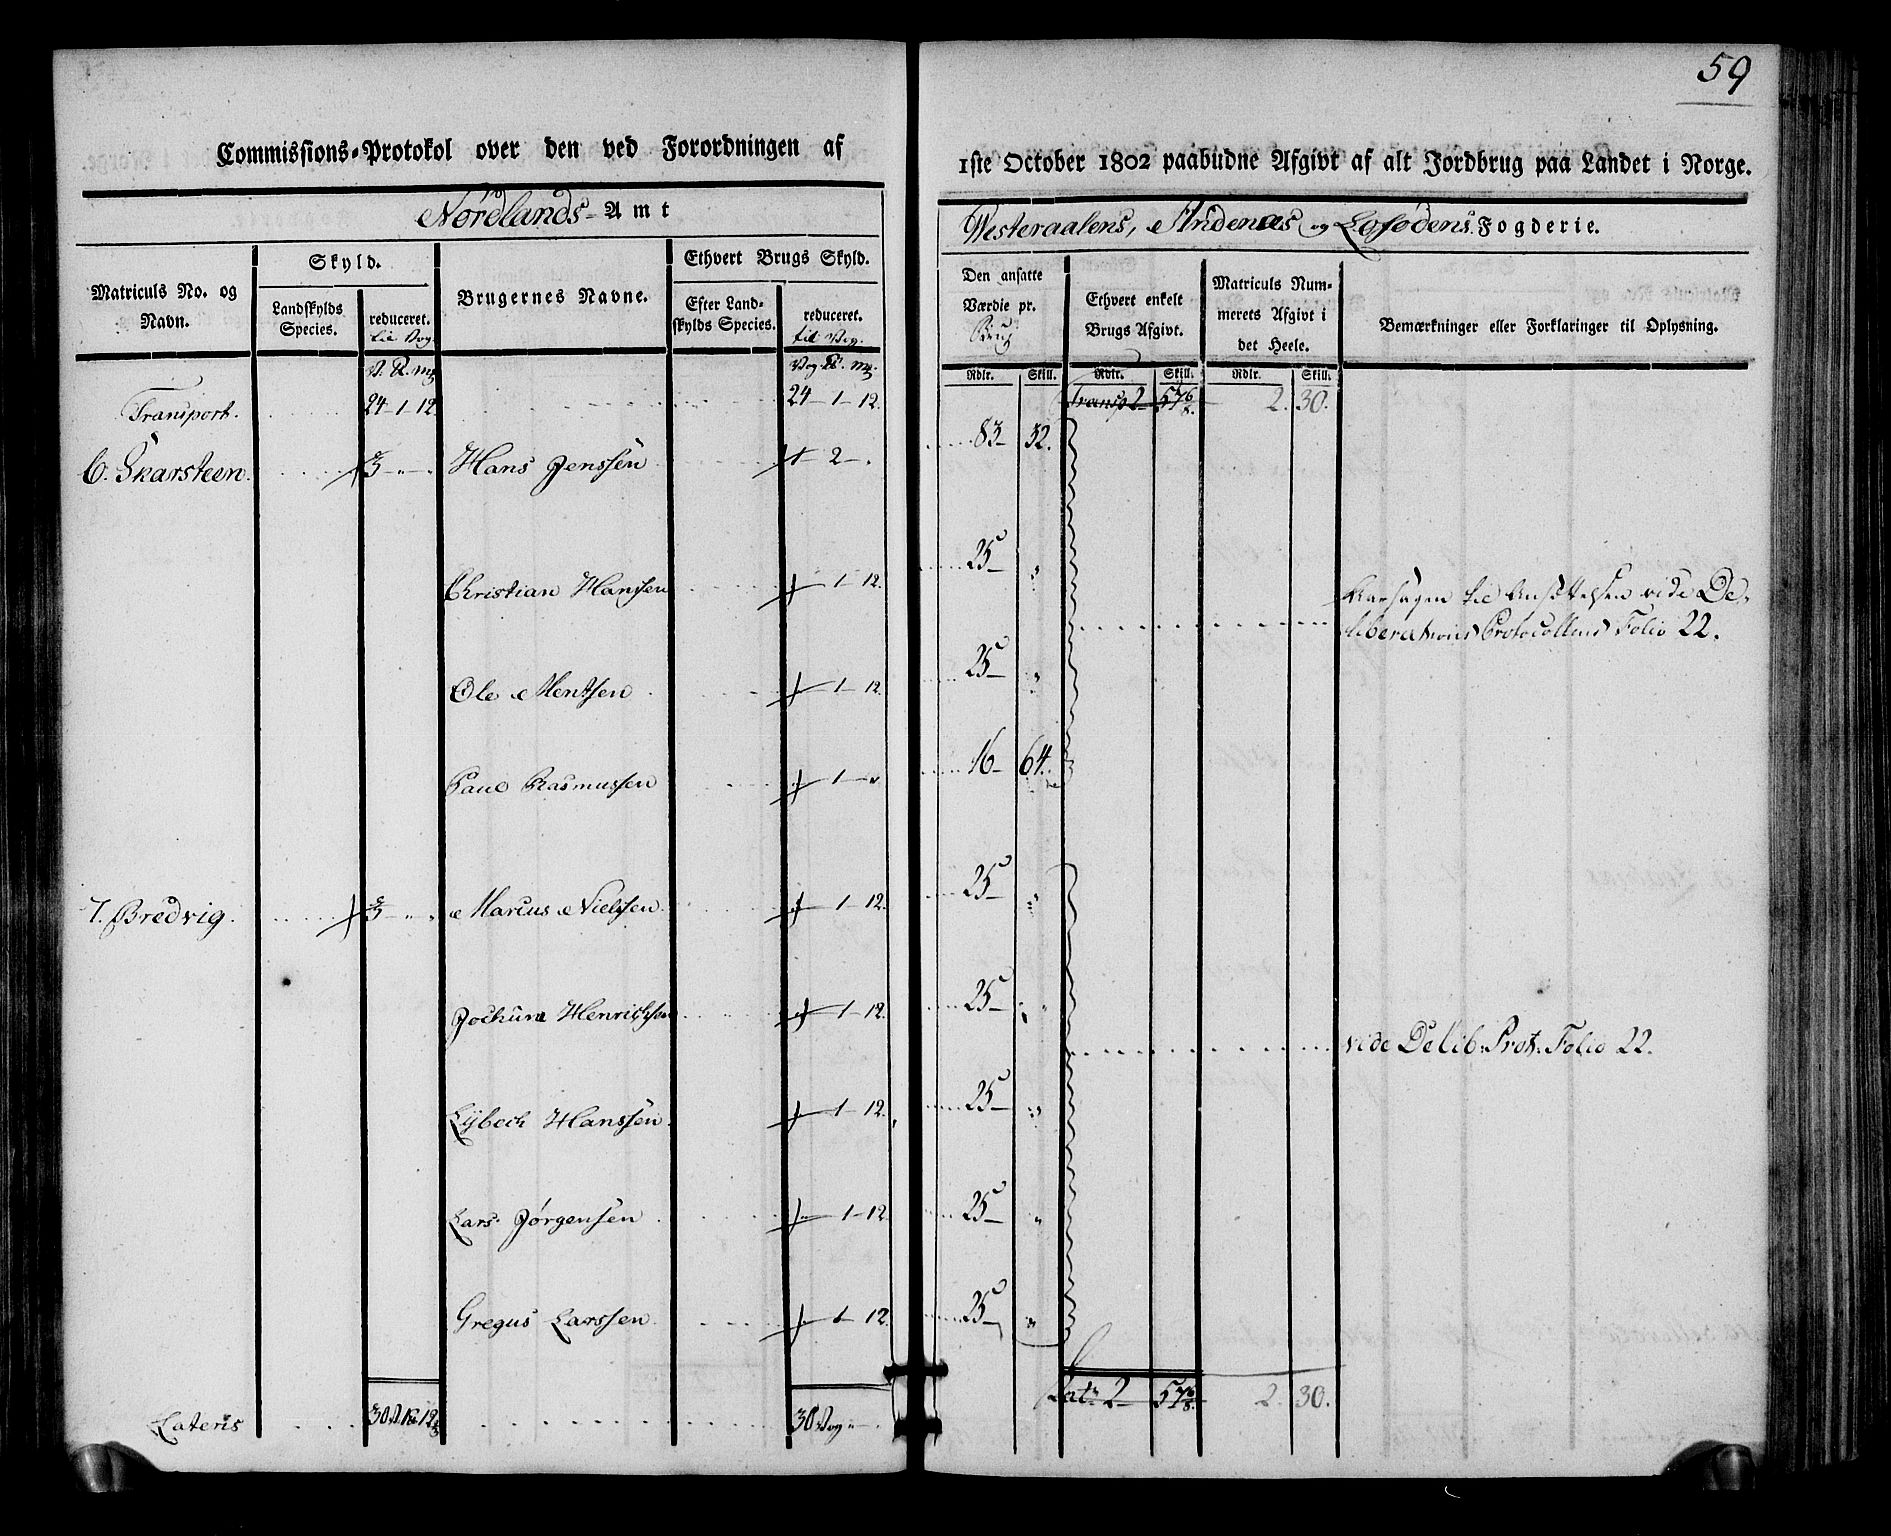 59
Commissions-Protokol over den ved Forordningen af
1ste October 1802 paabudne Afgivt af alt Jordbrug paa Landet i Norge.
Nordlands-Amt
Westeraalens, Andenæs og Lofodens Fogderie.
Matriculs No. og Navn.
Skyld.
Landskylds Species.
reduceret. til Vog.
Brugernes Navne.
Ethvert Brugs Skyld.
Efter Landskylds Species.
reduceret. til Vog.
Den ansatte Værdie pr. Brug
Ethvert enkelt Brugs Afgivt.
Matriculs Nummerets Afgivt i det Heele.
Bemærkninger eller Forklaringer til Oplysning.
Rdlr. Skill. Rdlr. Skill. Rdlr. Skill.
Transport. 24-1-12. 24-1-12. Transp 2 57 6/8. 2. 30.
6. Skarsteen. 3 Hans Jenssen 1-2-" 83-32.
Christian Hanssen 1-12. 25-"
Aarsagen til Ansættelsen vide De-
liberations Protocollens Folio 22.
Ole Mentsen 1-12. 25-"
Paul Rasmussen 1-" 16-64.
7. Bredvig. 3 Marcus Nielssen 1-12. 25-"
Jochum Henrichsen 1-12. 25-"
vide Delib: Prot: Folio 22.
Lybech Hanssen 1-12. 25-"
Lars Jørgensen 1-12. 25-"
Gregus Larssen 1-12. 25-"
Lateris 30 30 Vog Lat: 2 57 6/8. 2. 30.